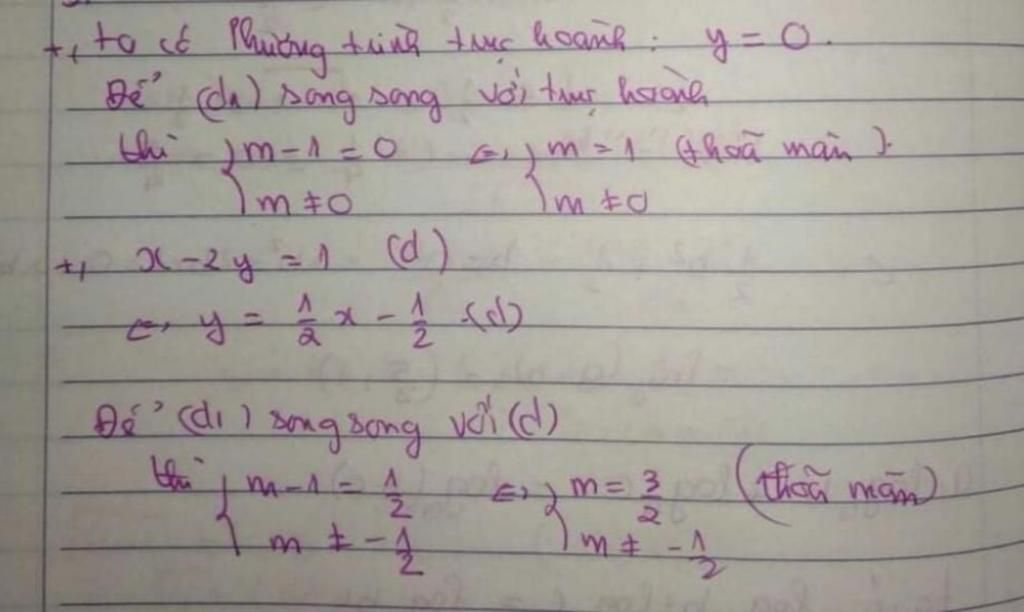 +, ta có Phương trình trục hoành: y = 0.
Để (d1) song song với trục hoành
thì { m - 1 = 0 ⇔ { m = 1 (thoã mãn).
{ m ≠ 0 { m ≠ 0
+, x - 2y = 1 (d)
⇔ y = 1/2 x - 1/2 (d)
Để (d1) song song với (d)
thì { m - 1 = 1/2 ⇔ { m = 3/2 (thoã mãn)
{ m ≠ - 1/2 { m ≠ - 1/2